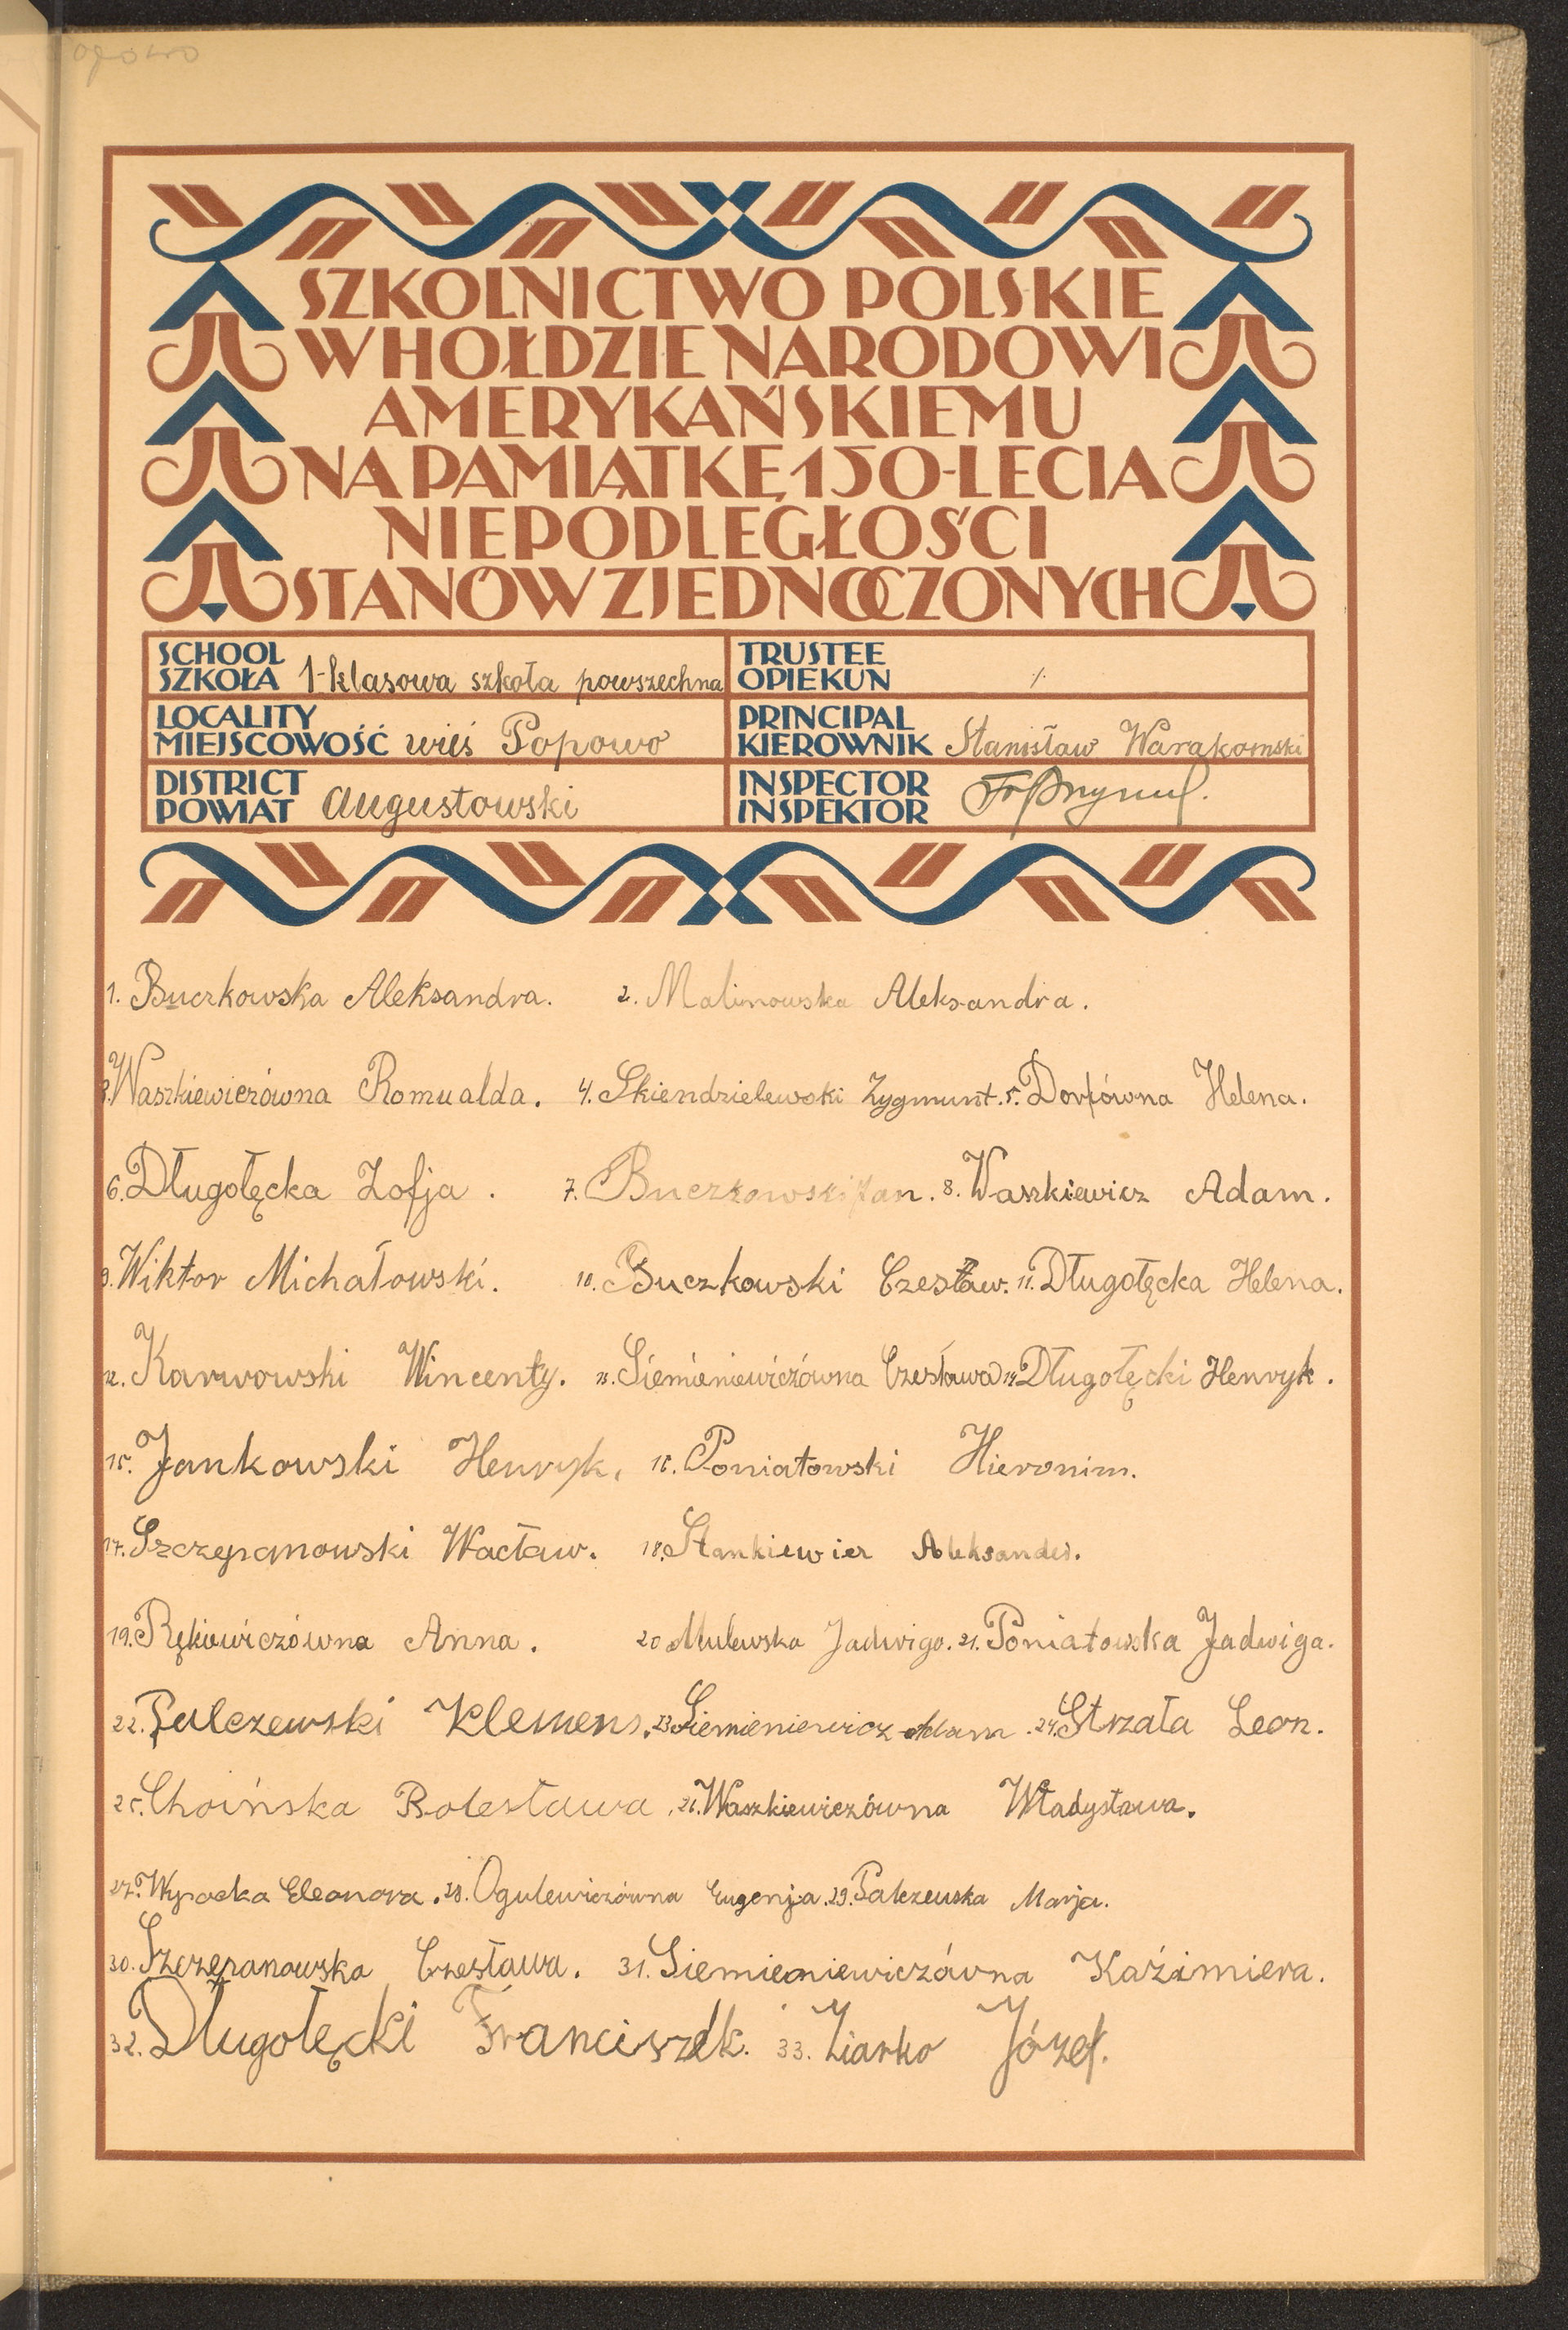 SZKOLNICTWO POLSKIE
W HOŁDZIE NARODOWI
AMERYKAŃSKIEMU
NA PAMIĄTKĘ 150-LECIA
NIEPODLEGŁOŚCI
STANÓW ZJEDNOCZONYCH
SCHOOL
SZKOŁA 1-klasowa szkoła powszechna
TRUSTEE
OPIEKUN
LOCALITY
MIEJSCOWOŚĆ wieś Popowo
PRINCIPAL
KIEROWNIK Stanisław Warakomski
DISTRICT
POWIAT augustowski
INSPECTOR
INSPEKTOR
1. Buczkowska Aleksandra. 2. Malinowska Aleksandra.
3. Waszkiewiczówna Romualda. 4. Skiendzielewski Zygmunt. 5. Dorfówna Helena.
6. Długołęcka Zofja. 7. Buczkowski Jan. 8. Waszkiewicz Adam.
9. Wiktor Michałowski. 10. Buczkowski Czesław. 11. Długołęcka Helena.
12. Karwowski Wincenty. 13. Siemieniewiczówna Czesława 14. Długołęcki Henryk.
15. Jankowski Henryk. 16. Poniatowski Hieronim.
17. Szczepanowski Wacław. 18. Stankiewicz Aleksander.
19. Rękiewiczówna Anna. 20 Mulewska Jadwiga. 21. Poniatowska Jadwiga.
22. Palczewski Klemens. 23. Siemieniewicz Adam. 24. Strzała Leon.
25. Choińska Bolesława. 26. Waszkiewiczówna Władysława.
27. Wysocka Eleonora. 28. Ogulewiczówna Eugenja. 29. Palczewska Marja.
30. Szczepanowska Czesława. 31. Siemieniewiczówna Kaźimiera.
32. Długołęcki Franciszek. 33. Ziarko Józef.